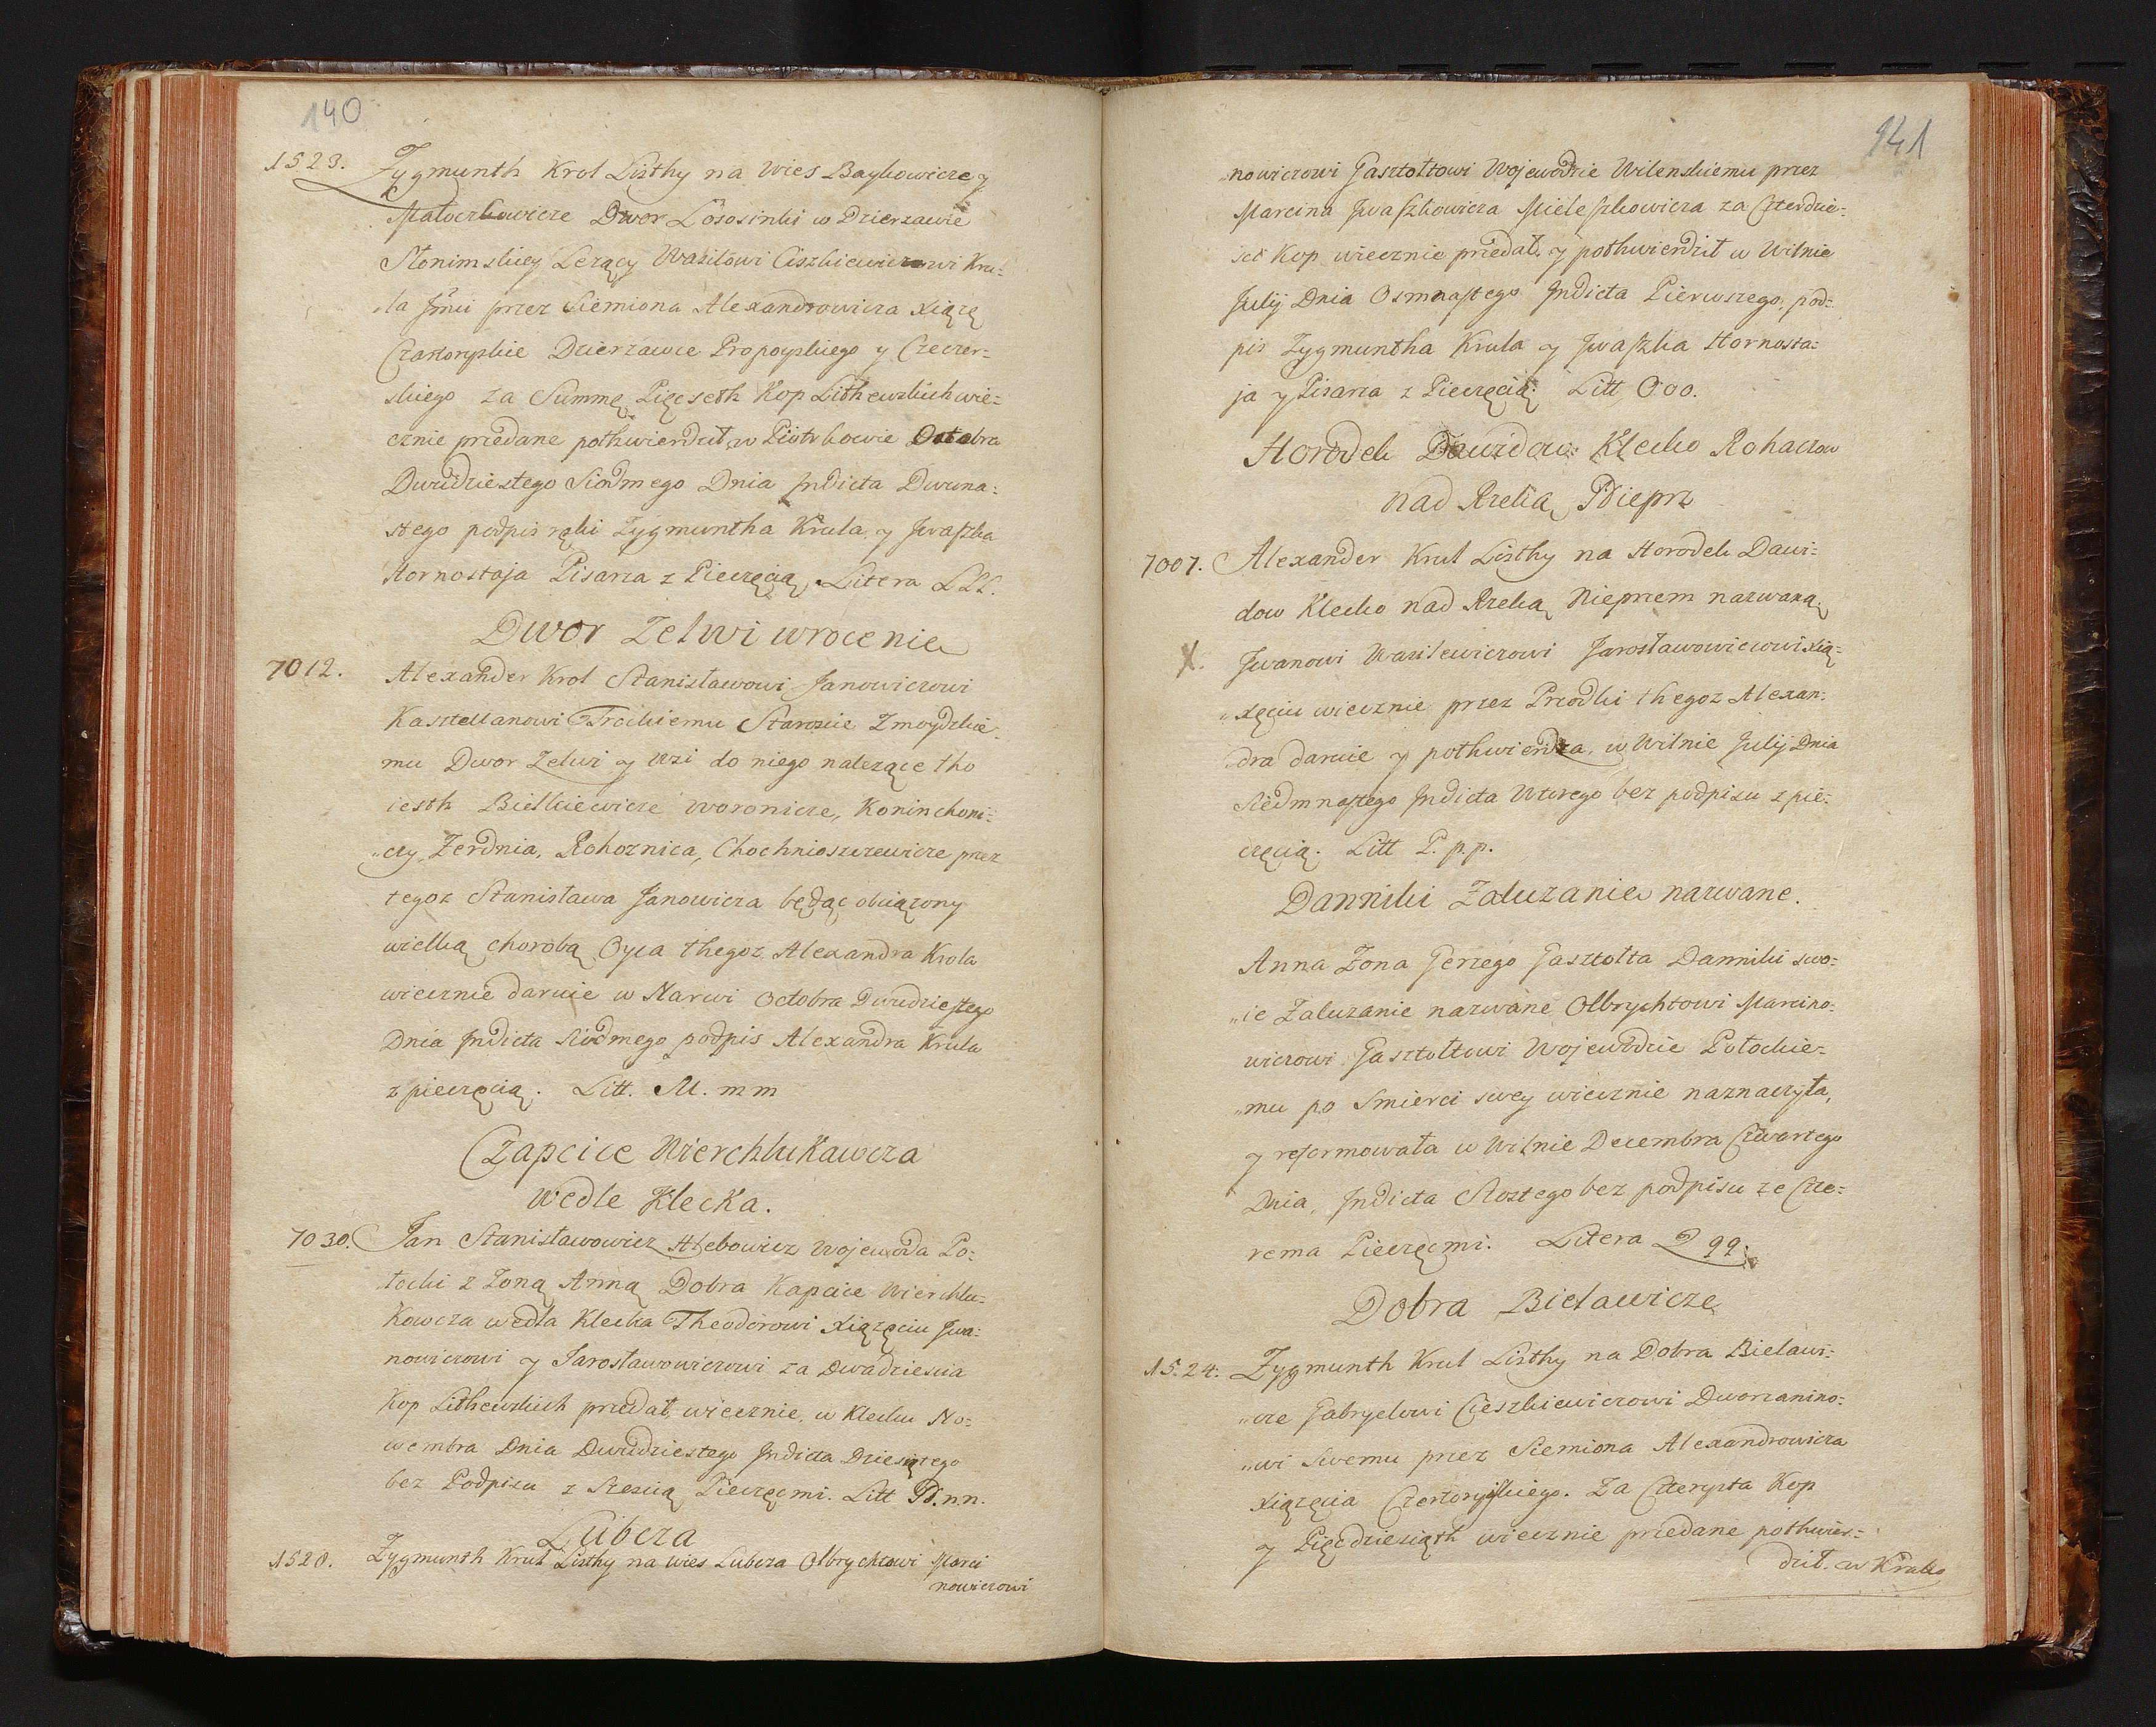 140
1523. Zygmunth Krol Listhy na wies Baykowicze y
Małoczkowicze Dwor Łososinki w Dzierzawie
Słonimskiey Lezący Wasilowi Ciszkiewiczowi Kru-
„la Jmu przez Siemiona Alexandrowicza Xiązę
Czartoryskie Dzierzawce Propoyskiego y Czeczer-
skiego za Summę Pięcseth Kop Lithewskich wie-
cznie przedane pothwierdził w Piotrkowie Octobra
Dwudziestego Siodmego Dnia Jndicta Dwuna-
stego podpis ręki Zygmuntha Krula y Jwaszka
Hornostaja Pisarza z Pieczęcią Litera LLL.
Dwor Zelwi wrocenie
7012. Alexander Krol Stanisławowi Janowiczowi
Kasztellanowi Trockiemu Staroscie Zmoydzkie-
mu Dwor Zelwi y wsi do niego nalezące tho
iesth Bielkiewicze Woronicze, Koninchoni-
„cy, Zerdnia, Rohoznica, Chochnioszczewicze przez
tegoz Stanisława Janowicza będąc obciązony
wielką chorobą Oyca thegoz Alexandra Krola
wiecznie daruie w Narwi Octobra Dwudziestego
Dnia Jndicta Siodmego podpis Alexandra Krula
z pieczęcią. Litt. M. m m
Czapcice Wierchlukawcza
wedle Klecka.
7030. Jan Stanisławowicz Hlebowicz Wojewoda Po-
łocki z Zoną Anną Dobra Kapcice Wierchlu-
Kowcza wedla Klecka Theodorowi Xiązęciu Jwa-
nowiczowi y Jarosławowiczowi za Dwadziescia
Kop Lithewskich przedał wiecznie w Klecku No-
wembra Dnia Dwudziestego Jndicta Dziesiątego
bez Podpisu z Szescią Pieczęcmi. Litt N.nn.
Lubcza
1520. Zygmunth Krul Listhy na wies Lubcza Olbrychtowi Marci
nowiczowi
141
„nowiczowi Gasztołtowi Wojewodzie Wilenskiemu przez
Marcina Jwaszkowicza Mieleszkowicza za Czterdzie-
sci Kop wiecznie przedał y pothwierdził w Wilnie
Julij Dnia Osmnastego Jndicta Pierwszego, pod-
pis Zygmuntha Krula y Jwaszka Hornosta-
ja y Pisarza z Pieczęcią: Litt Ooo.
Horodek Dawidow: Klecko Rohaczow
nad Rzeką Dniepr
7007. Alexander Krul Listhy na Horodek Dawi-
dow Klecko nad Rzeką Nieprzem nazwaną
X. Jwanowi Wasilewiczowi Jarosławowiczowi Xią-
„zęciu wiecznie przez Przodki thegoz Alexan-
dra daruie y pothwierdza, w Wilnie Julij Dnia
Siedmnastego Jndicta Wtorego bez podpisu z pie-
częcią. Litt P. p.p.
Danniki Zaluzanie nazwane.
Anna Zona Jerzego Gasztołta Danniki swo-
„ie Zaluzanie nazwane Olbrychtowi Marcino-
wiczowi Gasztołtowi Wojewodzie Połockie-
„mu po Smierci swey wiecznie naznaczyła,
y reformowała w Wilnie Decembra Czwartego
Dnia, Jndicta Szostego bez podpisu ze Czte-
rema Pieczęcmi. Litera Qqq.
Dobra Bielawicze
1524. Zygmunth Krul Listhy na Dobra Bielawi-
„cze Gabryelowi Cieszkiewiczowi Dworzanino-
„wi Swemu przez Siemiona Alexandrowicza
Xiązęcia Czertoryskiego. Za Czterysta Kop
y Pięcdziesiąth wiecznie przedane pothwier-
dził. w Krako